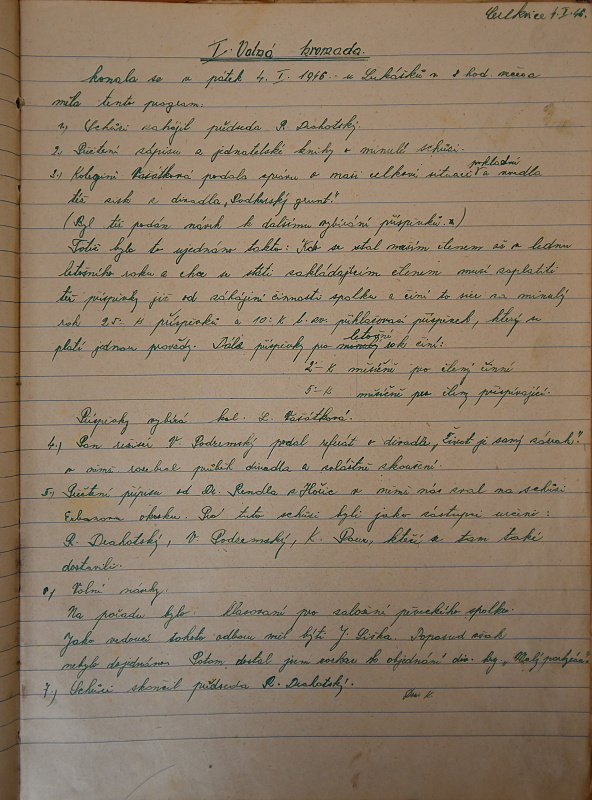 4.I.46.
I. Valná hromada.
konala se v pátek 4. I. 1946 u Lukášků v 8 hod večer a
měla tento program:
1.) Schůzi zahájil předseda R. Drahotský.
2. Přečtení zápisu z jednatelské knihy o minulé schůzi.
3.) Kolegyně Vašátková podala zprávu o naší celkové situaci pokladní a uvedla
též zisk z divadla „Podkorský grunt."
(Byl též podán návrh k dalšímu vybírání příspěvků.)
Totiž bylo to ujednáno takto: Kdo se stal naším členem až v lednu
letošního roku a chce se státi zakládajícím členem musí zaplatiti
též příspěvky již od zahájení činnosti spolku a činí to sice za minulý
rok 25.- K příspěvků a 10.- K t. zv. přihlašovací příspěvek, který se
platí jednou provždy. Dále příspěvky pro minulý letošní rok činí:
2.- K měsíčně pro členy činné
5.- K měsíčně pro členy přispívající.
Příspěvky vybírá kol. L. Vašátková.
4.) Pan režisér V. Podzemský podal referát o divadle „Život je samý zázrak".
v němž rozebral průběh divadla a zvláštně zkoušení.
5.) Přečtení přípisu od Dr. Rendla z Hořic v němž nás zval na schůzi
okrsku. Pro tuto schůzi byli jako zástupci určeni:
R. Drahotský, V. Podzemský, K. Paur, kteří se tam také
dostavili.
6.) Volné návrhy.
Na pořadu bylo: hlasovaní pro založení pěveckého spolku.
Jako vedoucí tohoto odboru měl býti J. Liška. Doposud však
nebylo dojednáno. Potom, dostal jsem rozkaz k objednání div. hry „Malý
7.) Schůzi skončil předseda R. Drahotský.